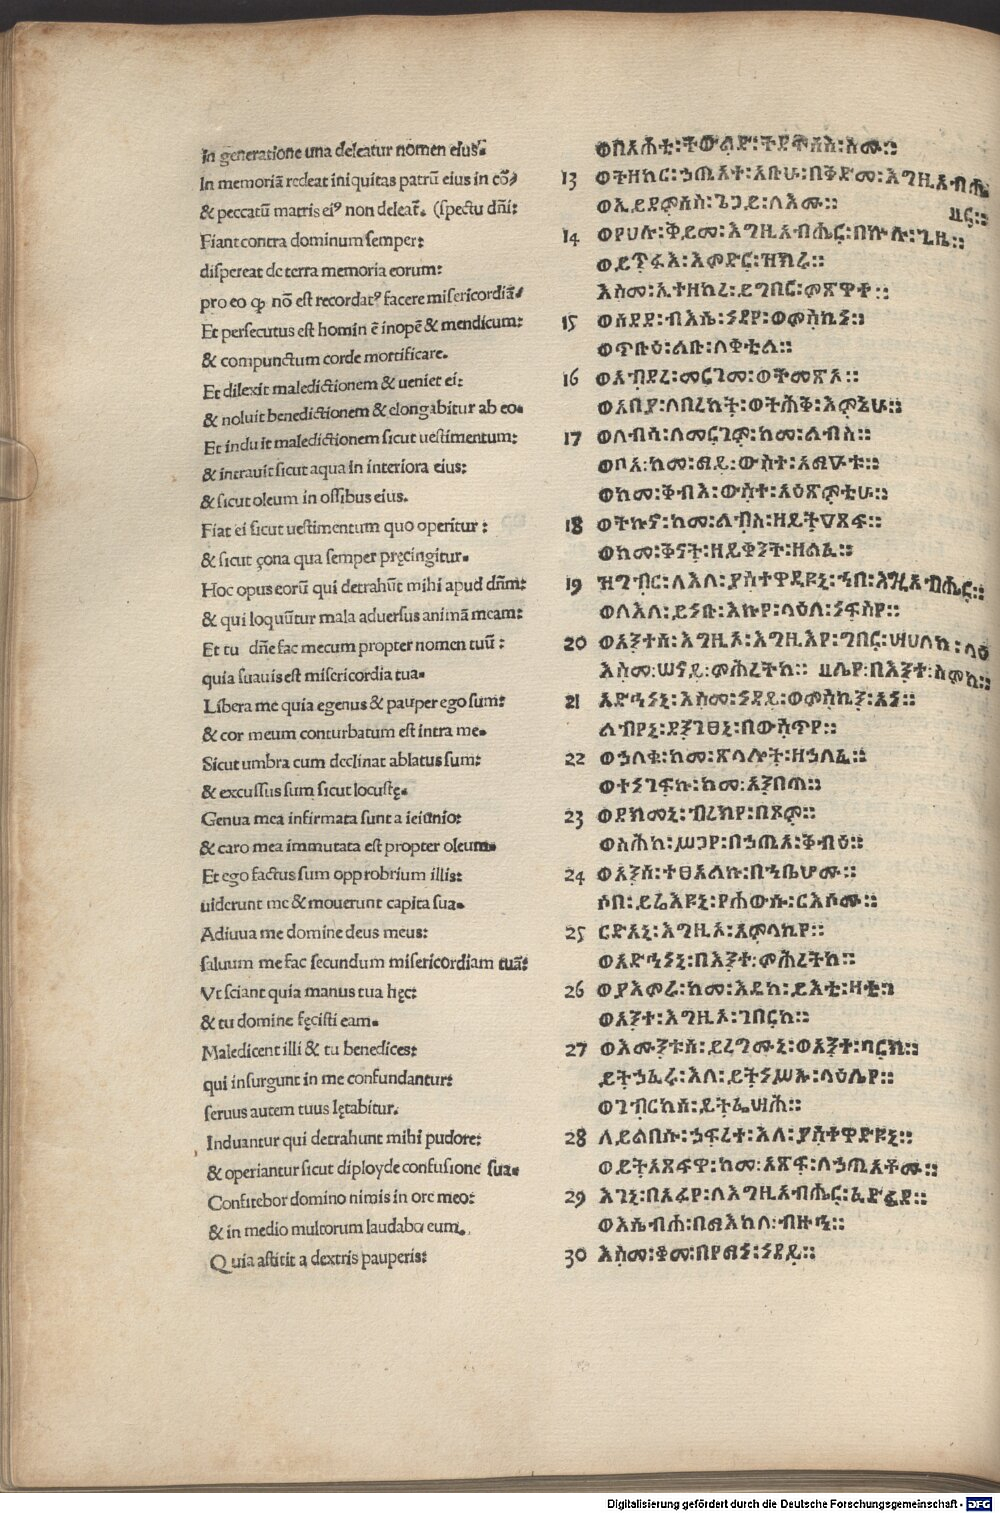 In generatione una deleatur nomen eius.
In memoriã redeat iniquitas patrũ eius in cõ⸗
& peccatũ matris ei⁹ non deleat̃. (spectu dñi:
Fiant contra dominum semper:
dispereat de terra memoria eorum:
pro eo ꝙ nõ est recordat⁹ facere misericordiã⸗
Et persecutus est homin ẽ inopẽ & mendicum:
& compunctum corde mortificare.
Et dilexit maledictionem & ueniet ei:
& noluit benedictionem & elongabitur ab eo.
Et indu it maledictionem sicut uestimentum:
& intrauit sicut aqua in interiora eius:
& sicut oleum in ossibus eius.
Fiat ei sicut uestimentum quo operitur :
& sicut çona qua semper pręcingitur.
Hoc opus eorũ qui detrahũt mihi apud dñm:
& qui loquũtur mala aduersus animã meam:
Et tu dñe fac mecum propter nomen tuũ :
quia suauis est misericordia tua.
Libera me quia egenus & pauper ego sum:
& cor meum conturbatum est intra me.
Sicut umbra cum declinat ablatus sum:
& excussus sum sicut locustę.
Genua mea infirmata sunt a ieiunio:
& caro mea immutata est propter oleum.
Et ego factus sum opp robrium illis:
uiderunt me & mouerunt capita sua.
Adiuua me domine deus meus:
saluum me fac secundum misericordiam tuã:
Vt sciant quia manus tua hęc:
& tu domine fęcisti eam.
Maledicent illi & tu benedices:
qui insurgunt in me confundantur:
seruus autem tuus lętabitur.
Induantur qui detrahunt mihi pudore:
& operiantur sicut diployde confusione sua.
Confitebor domino nimis in ore meo:
& in medio multorum laudabo eum.
Quia astitit a dextris pauperis:
ወበአሐቲ፡ትውልድ፡ትደምስስ፡ስሙ።
13 ወትዘከር፡ኃጢአተ፡አቡሁ፡በቅድመ፡እግዚአብሔ
ር።
ወኢይደምሰስ፡ጌጋይ፡ለእሙ።
14 ወየሀሉ፡ቅድመ፡እግዚአብሔር፡በኵሉ፡ጊዜ።
ወይጥፋእ፡እምድር፡ዝክሩ።
እስመ፡ኢተዘከረ፡ይግበር፡ምጽዋተ።
15 ወሰደደ፡ብእሴ፡ነዳየ፡ወምስኪነ።
ወጥቡዕ፡ልቡ፡ለቀቲል።
16 ወአብደረ፡መርገመ፡ወትመጽአ።
ወአበያ፡ለበረከት፡ወትሕቅ፡እምኔሁ።
17 ወለብሳ፡ለመርገም፡ከመ፡ልብስ።
ወቦአ፡ከመ፡ማይ፡ውስተ፡አማዑቱ።
ወከመ፡ቅብእ፡ውስተ፡አዕጽምቲሁ።
18 ወትኩኖ፡ከመ፡ልብስ፡ዘይትዐጸፍ።
ወከመ፡ቅናት፡ዘይቀንት፡ዘልፈ።
19 ዝግብር፡ለእለ፡ያስተዋዲዩኒ፡ኀበ፡እግዚአብሔር።
ወለእለ፡ይነቡ፡እኩየ፡ላዕለ፡ነፍስየ።
20 ወአንተሰ፡እግዚኦ፡እግዚእየ፡ግበር፡ሣህለከ፡ላዕ
እስመ፡ሠናይ፡ምሕረትከ። ሌየ፡በእንተ፡ስምከ።
21 አድኅነኒ፡እስመ፡ነዳይ፡ወምስኪን፡አነ።
ልብየኒ፡ደንገፀኒ፡በውስጥየ።
22 ወኃለቁ፡ከመ፡ጽላሎት፡ዘኃለፈ።
ወተነገፍኩ፡ከመ፡አንበጣ።
23 ወደክመኒ፡ብረክየ፡በጾም።
ወስሕከ፡ሥጋየ፡በኃጢአ፡ቅብዕ።
24 ወአንሰ፡ተፀአልኩ፡በኀቤሆሙ።
ሶበ፡ይሬእዩኒ፡የሐውሱ፡ርእሶሙ።
25 ርድአኒ፡እግዚኦ፡አምላኪየ።
ወአድኅነኒ፡በእንተ፡ምሕረትከ።
26 ያእምሩ፡ከመ፡እዴከ፡ይእቲ፡ዛቲ።
ወአንተ፡እግዚኦ፡ገበርከ።
27 ወእሙንቱሰ፡ይረግሙኒ፡ወአንተ፡ባርክ።
ይትኃፈሩ፡እለ፡ይትነሥኡ፡ላዕሌየ።
ወገብርከሰ፡ይትፌሣሕ።
28 ለይልበሱ፡ኃፍረተ፡እለ፡ያስተዋድዩኒ።
ወይትአጸፍዋ፡ከመ፡አጽፍ፡ለኃጢአቶሙ።
29 እገኒ፡በአፉየ፡ለእግዚአብሔር፡ፈድፋደ።
ወእሴብሖ፡በማእከለ፡ብዙኅ።
30 እስመ፡ቆመ፡በየማነ፡ነዳይ።
Digitalisierung gefördert durch die Deutsche Forschungsgemeinschaft - DFG